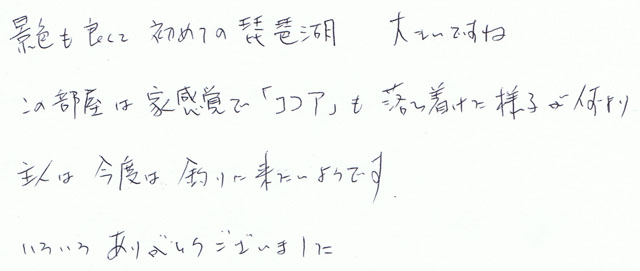 景色も良くて 初めての琵琶湖 大きいですね
この部屋は家感覚で「ココア」も落ち着けた様子が何より
主人は今度は釣りに来たいようです
いろいろありがとうございました